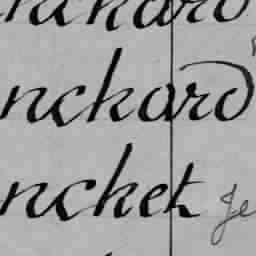 nckard
nckard
ncket Je